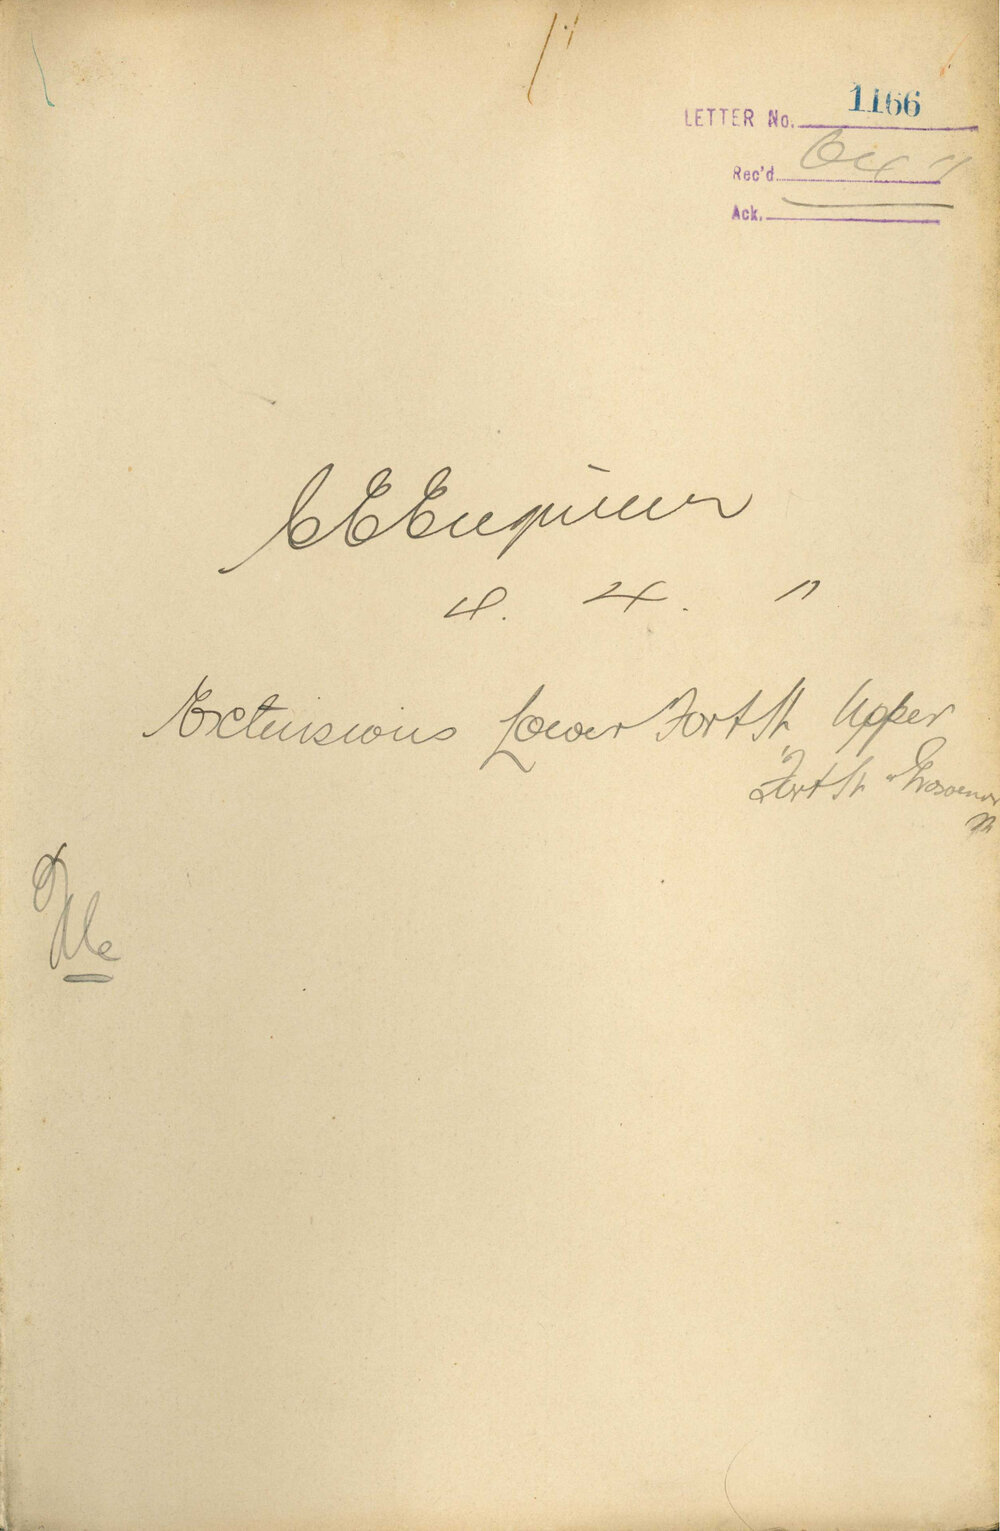 LETTER No. 1166
Rec'd 6 4 11
Ack.
C E Engineer
4. 4. 11
Extensions Lower Fort St Upper
Fort St Grosvenor
St
File